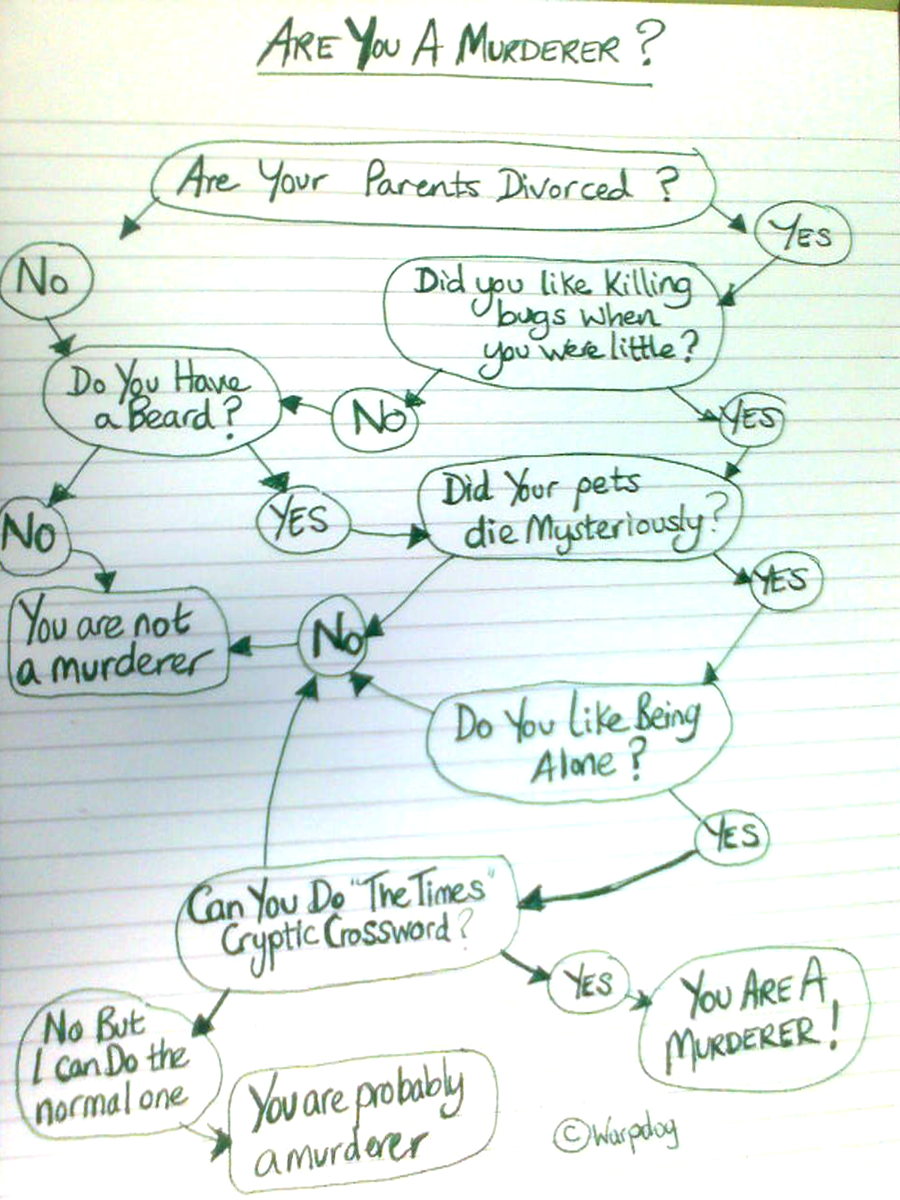 ARE YOU A MURDERER?
Are Your Parents Divorced?
YES
No
Did you like Killing
bugs when
you were little?
Do You Have
a Beard?
No
YES
Did Your pets
die Mysteriously?
No
YES
YES
You are not
a murderer
No
Do You Like Being
Alone?
YES
Can You Do "The Times"
Cryptic Crossword?
YES
You ARE A
MURDERER!
No But
I can Do the
normal one
You are probably
a murderer
©Warpdog